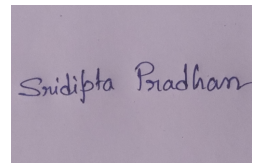 Sridipta Pradhan